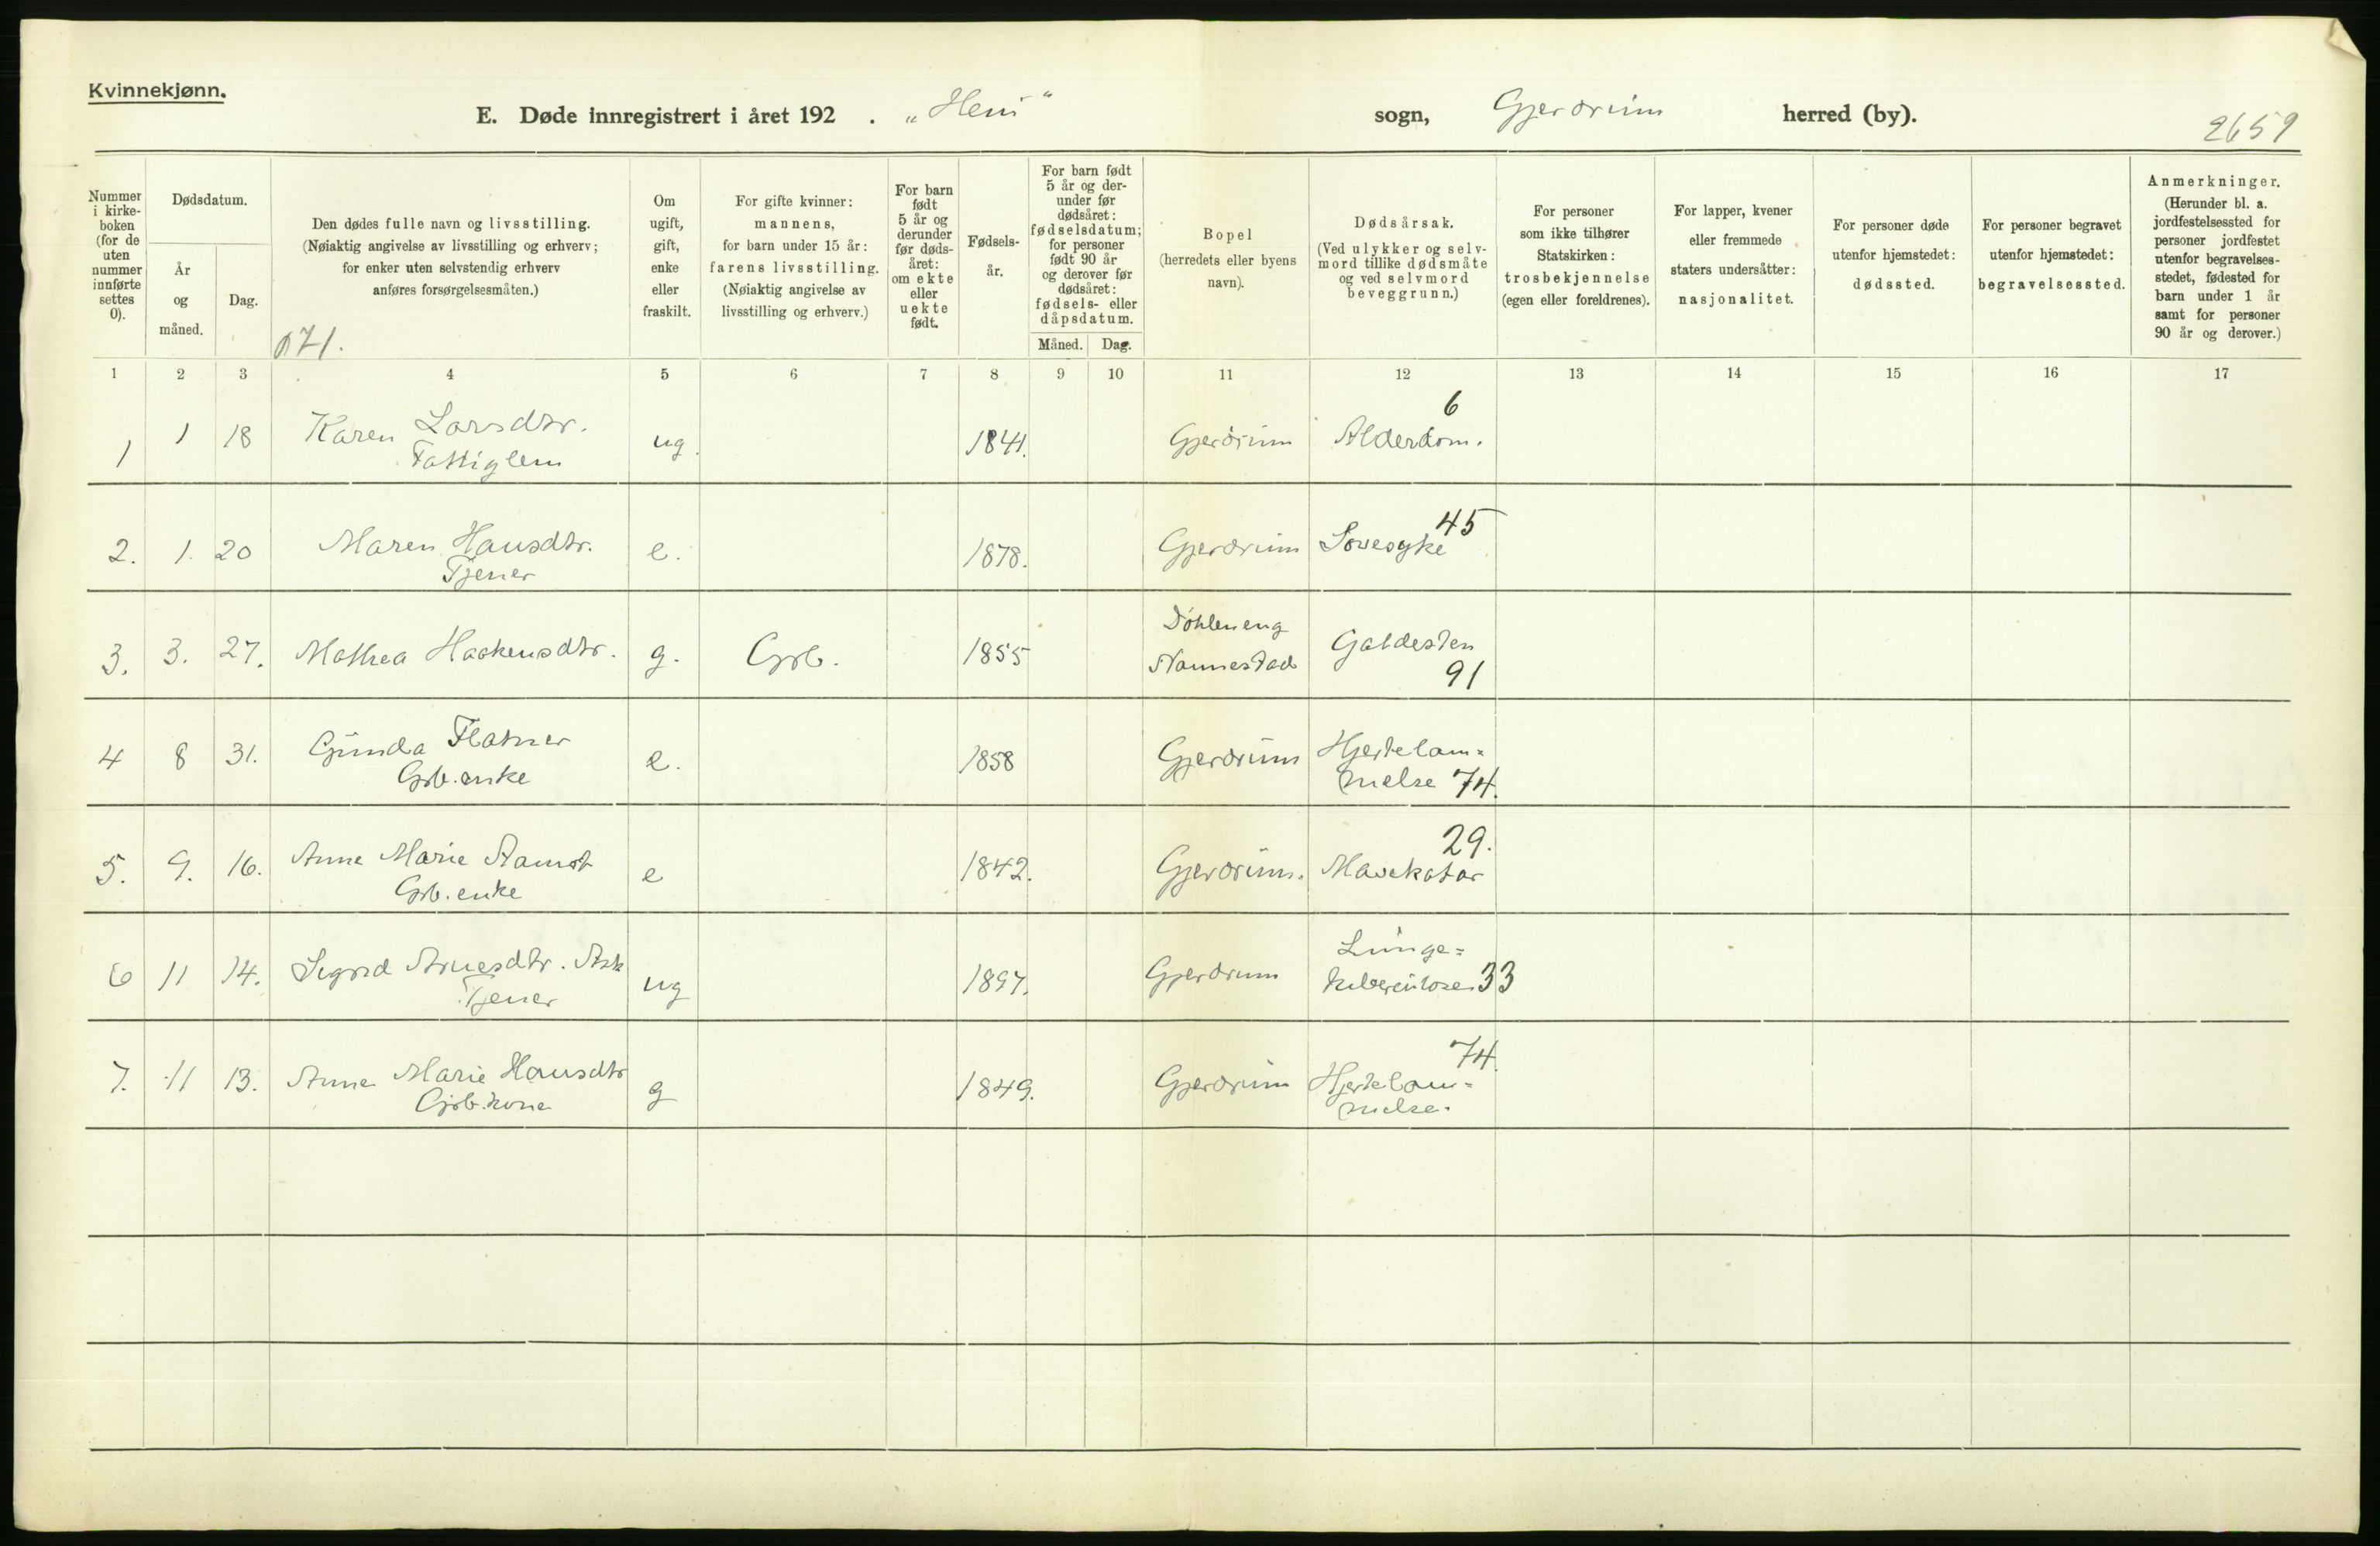 Kvinnekjønn.
E. Døde innregistrert i året 192 . „Heni“ sogn, Gjerdrum herred (by).
2659
Nummer i kirke-boken (for de uten nummer innførte settes 0).
Dødsdatum.
År og måned.
Dag.
Den dødes fulle navn og livsstilling.
(Nøiaktig angivelse av livsstilling og erhverv;
for enker uten selvstendig erhverv
anføres forsørgelsesmåten.)
171.
Om
ugift,
gift,
enke
eller
fraskilt.
For gifte kvinner:
mannens,
for barn under 15 år:
farens livsstilling.
(Nøiaktig angivelse av
livsstilling og erhverv.)
For barn
født
5 år og
derunder
før døds-
året:
om ekte
eller
uekte
født.
Fødsels-
år.
For barn født
5 år og der-
under før
dødsåret:
fødselsdatum;
for personer
født 90 år
og derover før
dødsåret:
fødsels- eller
dåpsdatum.
Måned. Dag.
Bopel
(herredets eller byens
navn).
Dødsårsak.
(Ved ulykker og selv-
mord tillike dødsmåte
og ved selvmord
beveggrunn.)
For personer
som ikke tilhører
Statskirken:
trosbekjennelse
(egen eller foreldrenes).
For lapper, kvener
eller fremmede
staters undersåtter:
nasjonalitet.
For personer døde
utenfor hjemstedet:
dødssted.
For personer begravet
utenfor hjemstedet:
begravelsessted.
Anmerkninger.
(Herunder bl. a.
jordfestelsessted for
personer jordfestet
utenfor begravelses-
stedet, fødested for
barn under 1 år
samt for personer
90 år og derover.)
1 2 3 4 5 6 7 8 9 10 11 12 13 14 15 16 17
6
1 1 18 Karen Larsdtr. ug. 1841. Gjerdrum Alderdom.
Fattiglem
45
2. 1. 20 Maren Hansdtr. e. 1878. Gjerdrum Sovesyke
Tjener
Döhleneng
3. 3. 27. Mathea Haakensdtr. g. Grb. 1855 Nannestad Galdesten
91
4 8 31. Gunda Flatner e. 1858 Gjerdrum Hjertelam-
Grb. enke melse 74.
29.
5. 9. 16. Anne Marie Aamot e 1842. Gjerdrum. Mavekatar
Grb. enke
6 11 14. Sigrid Arnesdtr. Ask ug 1897. Gjerdrum Lunge-
Tjener tuberkulose 33
74.
7. 11 13. Anne Marie Hansdtr g 1849. Gjerdrum Hjertelam-
Grb. kone melse.